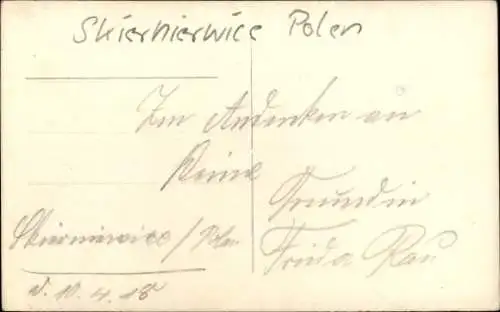 Skiernierwice Polen
Zum Andenken an
Deine
Freundin
Frieda Rau
Skierniewice / Polen
d. 10.4.18